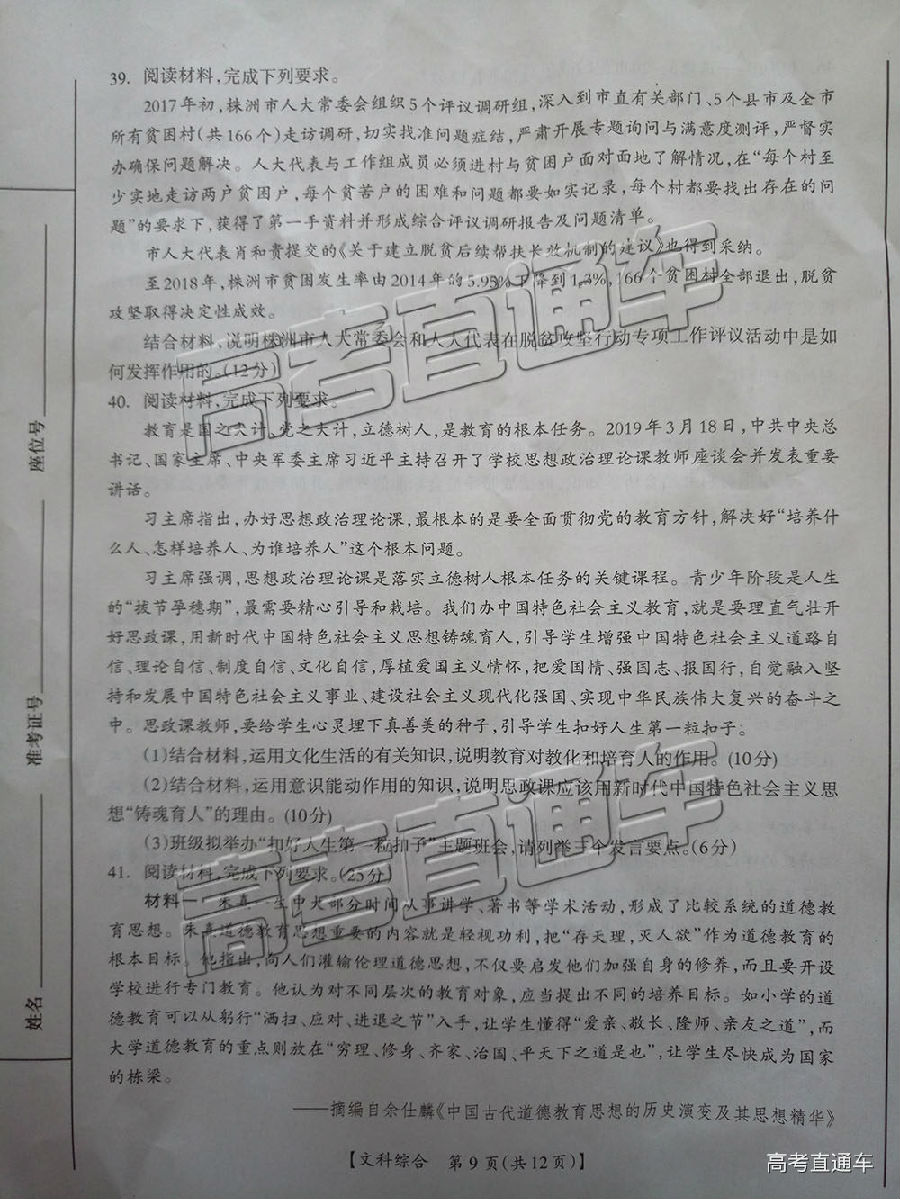 39. 阅读材料,完成下列要求。
2017年初,株洲市人大常委会组织5个评议调研组,深入到市直有关部门、5个县市及全市
所有贫困村(共166个)走访调研,切实找准问题症结,严肃开展专题询问与满意度测评,严督实
办确保问题解决。人大代表与工作组成员必须进村与贫困户面对面地了解情况,在“每个村至
少实地走访两户贫困户,每个贫苦户的困难和问题都要如实记录,每个村都要找出存在的问
题”的要求下,获得了第一手资料并形成综合评议调研报告及问题清单。
市人大代表肖和贵提交的《关于建立脱贫后续帮扶长效机制的建议》也得到采纳。
至2018年,株洲市贫困发生率由2014年的5.95%下降到1.3%,166个贫困村全部退出,脱贫
攻坚取得决定性成效。
结合材料,说明株洲市人大常委会和人大代表在脱贫攻坚行动专项工作评议活动中是如
何发挥作用的。(12分)
40. 阅读材料,完成下列要求。
教育是国之大计、党之大计,立德树人,是教育的根本任务。2019年3月18日,中共中央总
书记、国家主席、中央军委主席习近平主持召开了学校思想政治理论课教师座谈会并发表重要
讲话。
习主席指出,办好思想政治理论课,最根本的是要全面贯彻党的教育方针,解决好“培养什
么人、怎样培养人、为谁培养人”这个根本问题。
习主席强调,思想政治理论课是落实立德树人根本任务的关键课程。青少年阶段是人生
的“拔节孕穗期”,最需要精心引导和栽培。我们办中国特色社会主义教育,就是要理直气壮开
好思政课,用新时代中国特色社会主义思想铸魂育人,引导学生增强中国特色社会主义道路自
信、理论自信、制度自信、文化自信,厚植爱国主义情怀,把爱国情、强国志、报国行,自觉融入坚
持和发展中国特色社会主义事业、建设社会主义现代化强国、实现中华民族伟大复兴的奋斗之
中。思政课教师,要给学生心灵埋下真善美的种子,引导学生扣好人生第一粒扣子。
(1)结合材料,运用文化生活的有关知识,说明教育对教化和培育人的作用。(10分)
(2)结合材料,运用意识能动作用的知识,说明思政课应该用新时代中国特色社会主义思
想“铸魂育人”的理由。(10分)
(3)班级拟举办“扣好人生第一粒扣子”主题班会,请列举三个发言要点。(6分)
41. 阅读材料,完成下列要求。(25分)
材料一 朱熹一生中大部分时间从事讲学、著书等学术活动,形成了比较系统的道德教
育思想。朱熹道德教育思想重要的内容就是轻视功利,把“存天理,灭人欲”作为道德教育的
根本目标。他指出,向人们灌输伦理道德思想,不仅要启发他们加强自身的修养,而且要开设
学校进行专门教育。他认为对不同层次的教育对象,应当提出不同的培养目标。如小学的道
德教育可以从躬行“洒扫、应对、进退之节”入手,让学生懂得“爱亲、敬长、隆师、亲友之道”,而
大学道德教育的重点则放在“穷理、修身、齐家、治国、平天下之道是也”,让学生尽快成为国家
的栋梁。
——摘编自佘仕麟《中国古代道德教育思想的历史演变及其思想精华》
【文科综合 第9页(共12页)】
座位号
准考证号
姓名
高考直通车
高考直通车
高考直通车